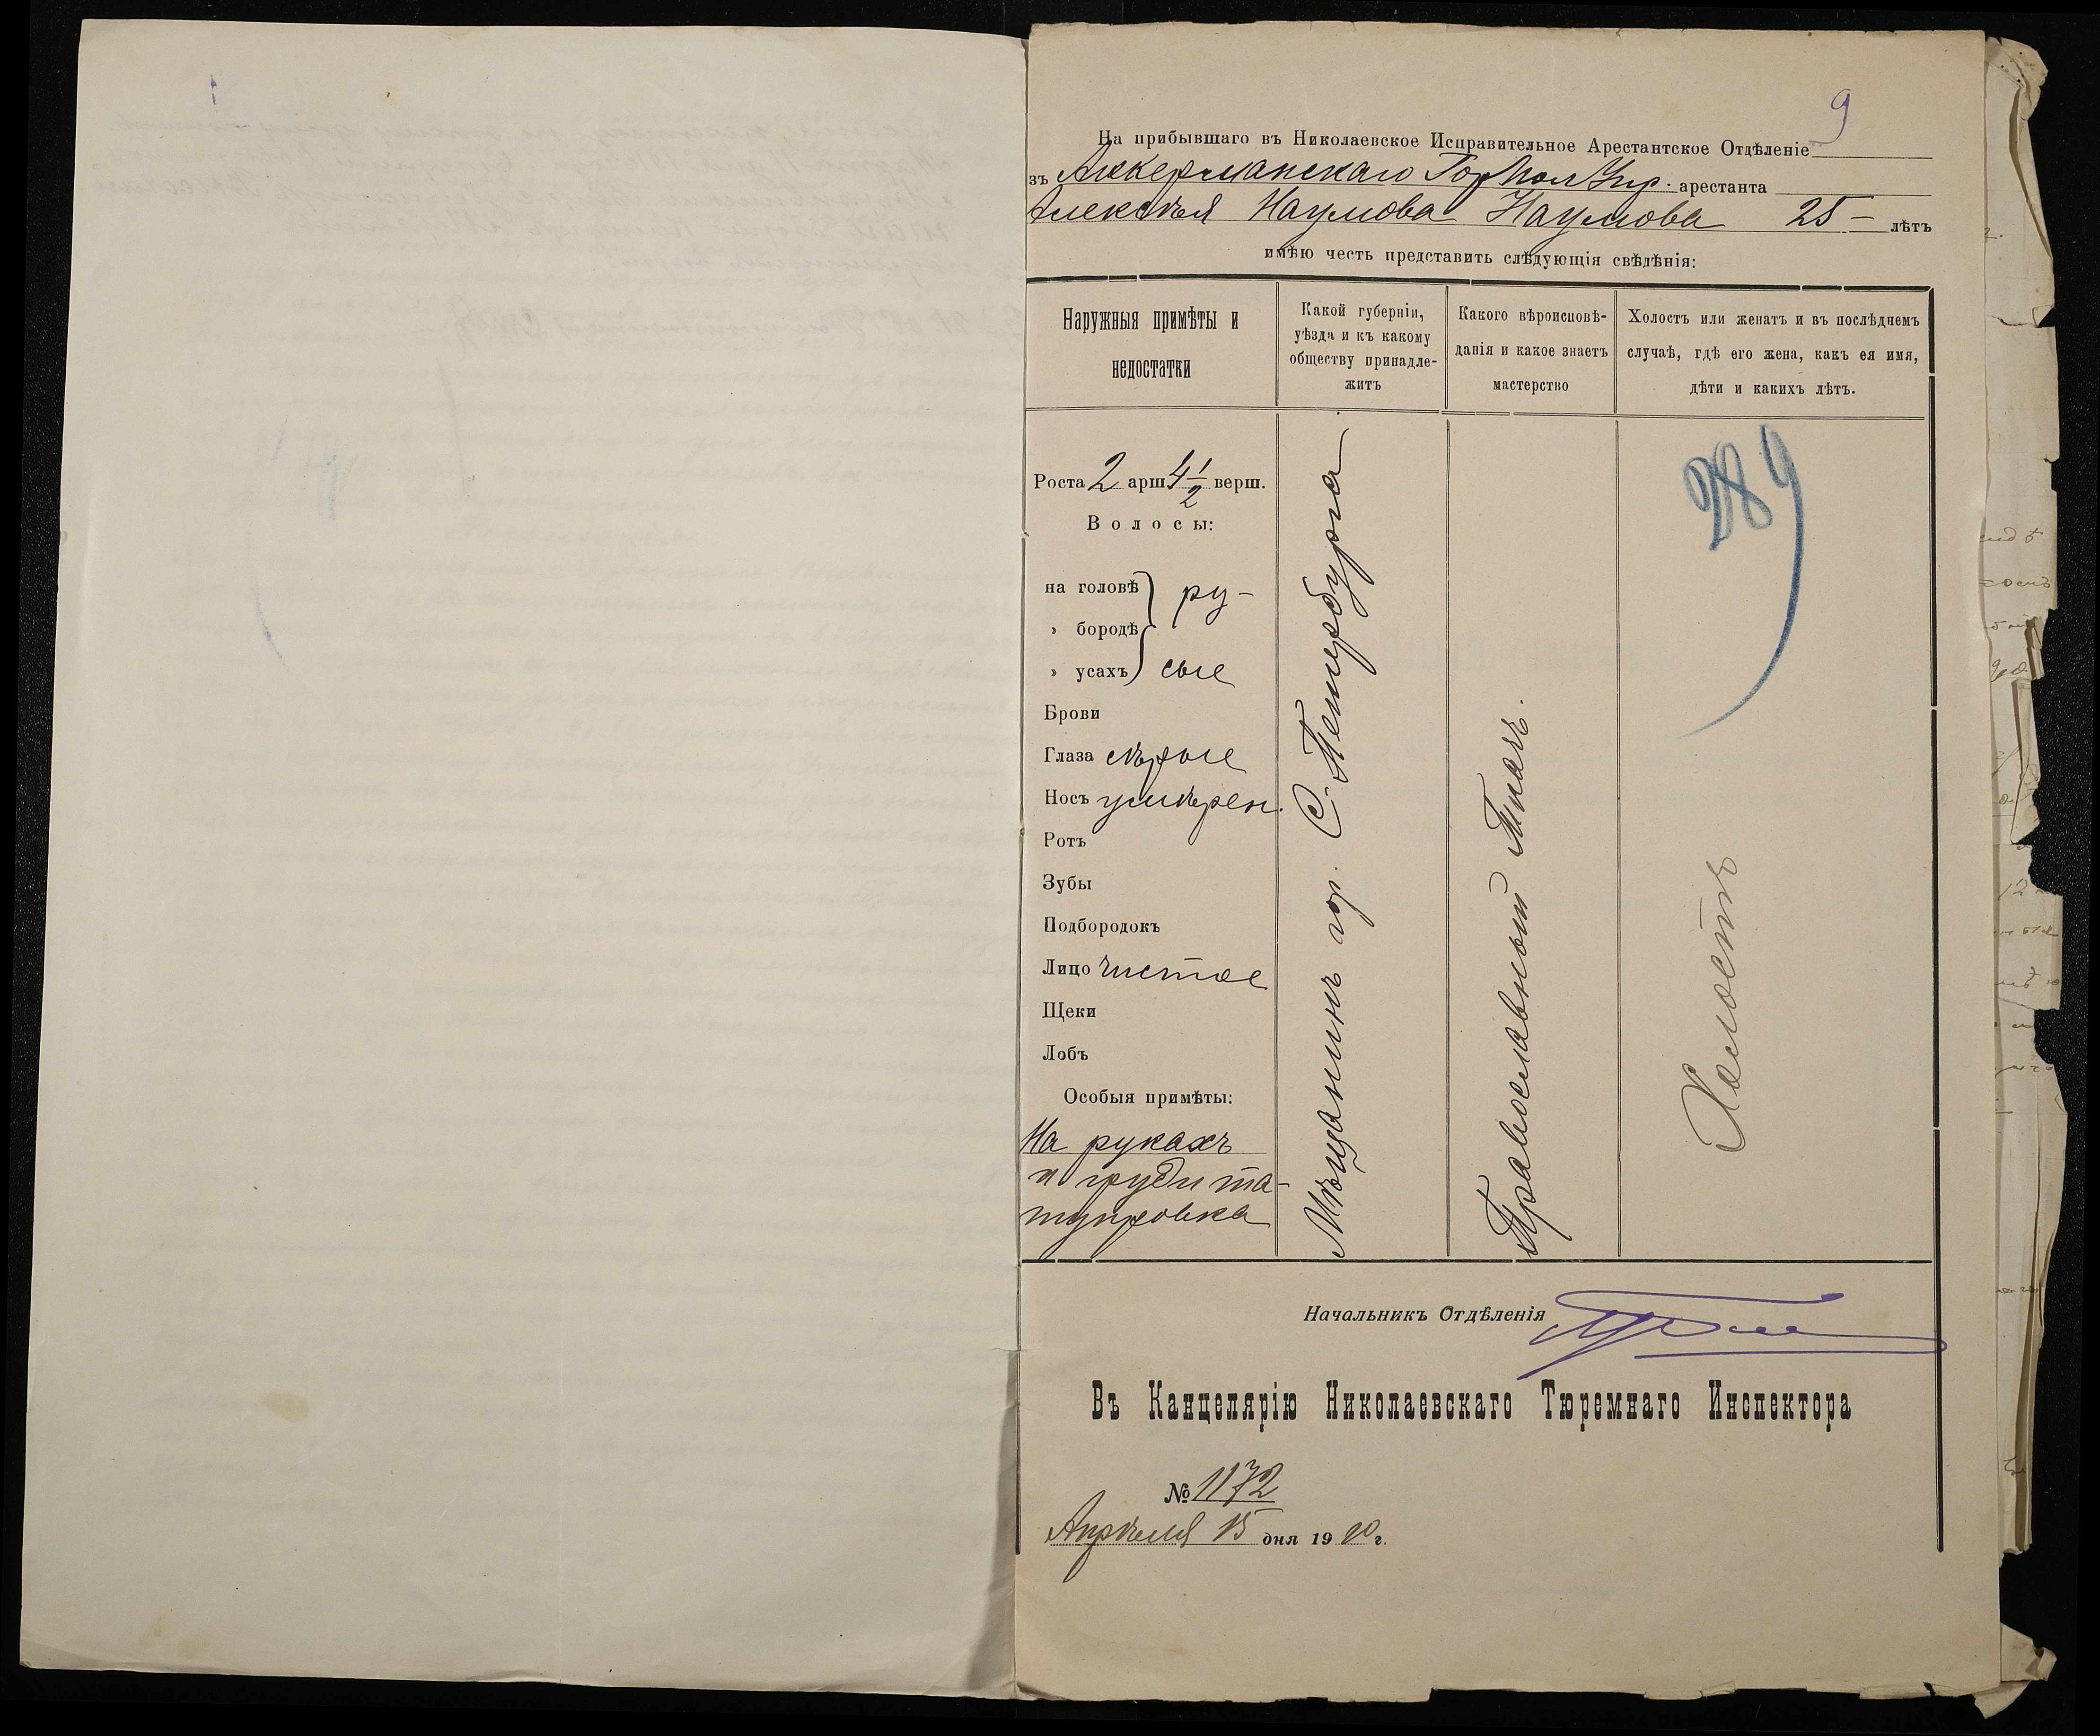 9
На прибывшаго въ Николаевское Исправительное Арестантское Отдѣленіе
зъ Аккерманскаго Гор Пол Упр. арестанта
Алексѣя Наумова Наумова 25 – лѣтъ
имѣю честь представить слѣдующія свѣдѣнія:
Наружныя примѣты и
недостатки
Какой губерніи,
уѣзда и къ какому
обществу принадле-
житъ
Какого вѣроисповѣ-
данія и какое знаетъ
мастерство
Холостъ или женатъ и въ послѣднемъ
случаѣ, гдѣ его жена, какъ ея имя,
дѣти и какихъ лѣтъ.
Роста 2 арш 4 1/2 верш.
Волосы:
на головѣ ру-
» бородѣ
» усахъ сые
Брови
Глаза сѣрые
Носъ умѣрен.
Ротъ
Зубы
Подбородокъ
Лицо чистое
Щеки
Лобъ
Особыя примѣты:
На рукахъ
и груди та-
туировка
Мѣщанинъ гор. С-Петербурга
Православный Ткачъ.
289
Холостъ
Начальникъ Отдѣленія
Въ Канцелярію Николаевскаго Тюремнаго Инспектора
№ 1172
Апрѣля 15 дня 1910 г.